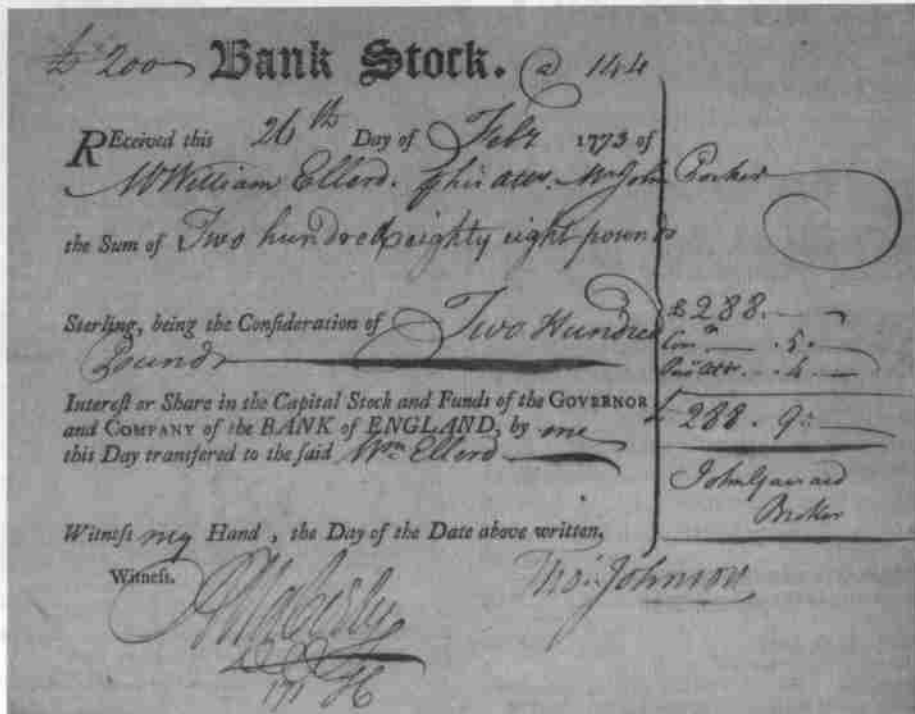 £ 200 Bank Stock. @ 144
REceived this 26th Day of Febr 1773 of
Mr William Ellerd. p his atto. Mr John
the Sum of Two hundred eighty eight pounds
Sterling, being the Consideration of Two Hundred
Pounds
Intereſt or Share in the Capital Stock and Funds of the GOVERNOR
and COMPANY of the BANK of ENGLAND, by me
this Day transfered to the ſaid Wm Ellerd
Witneſs my Hand, the Day of the Date above written,
Witneſs.
Thos. Johnson
£288.
Com.n 5.
4
£ 288. 9:
John
Broker